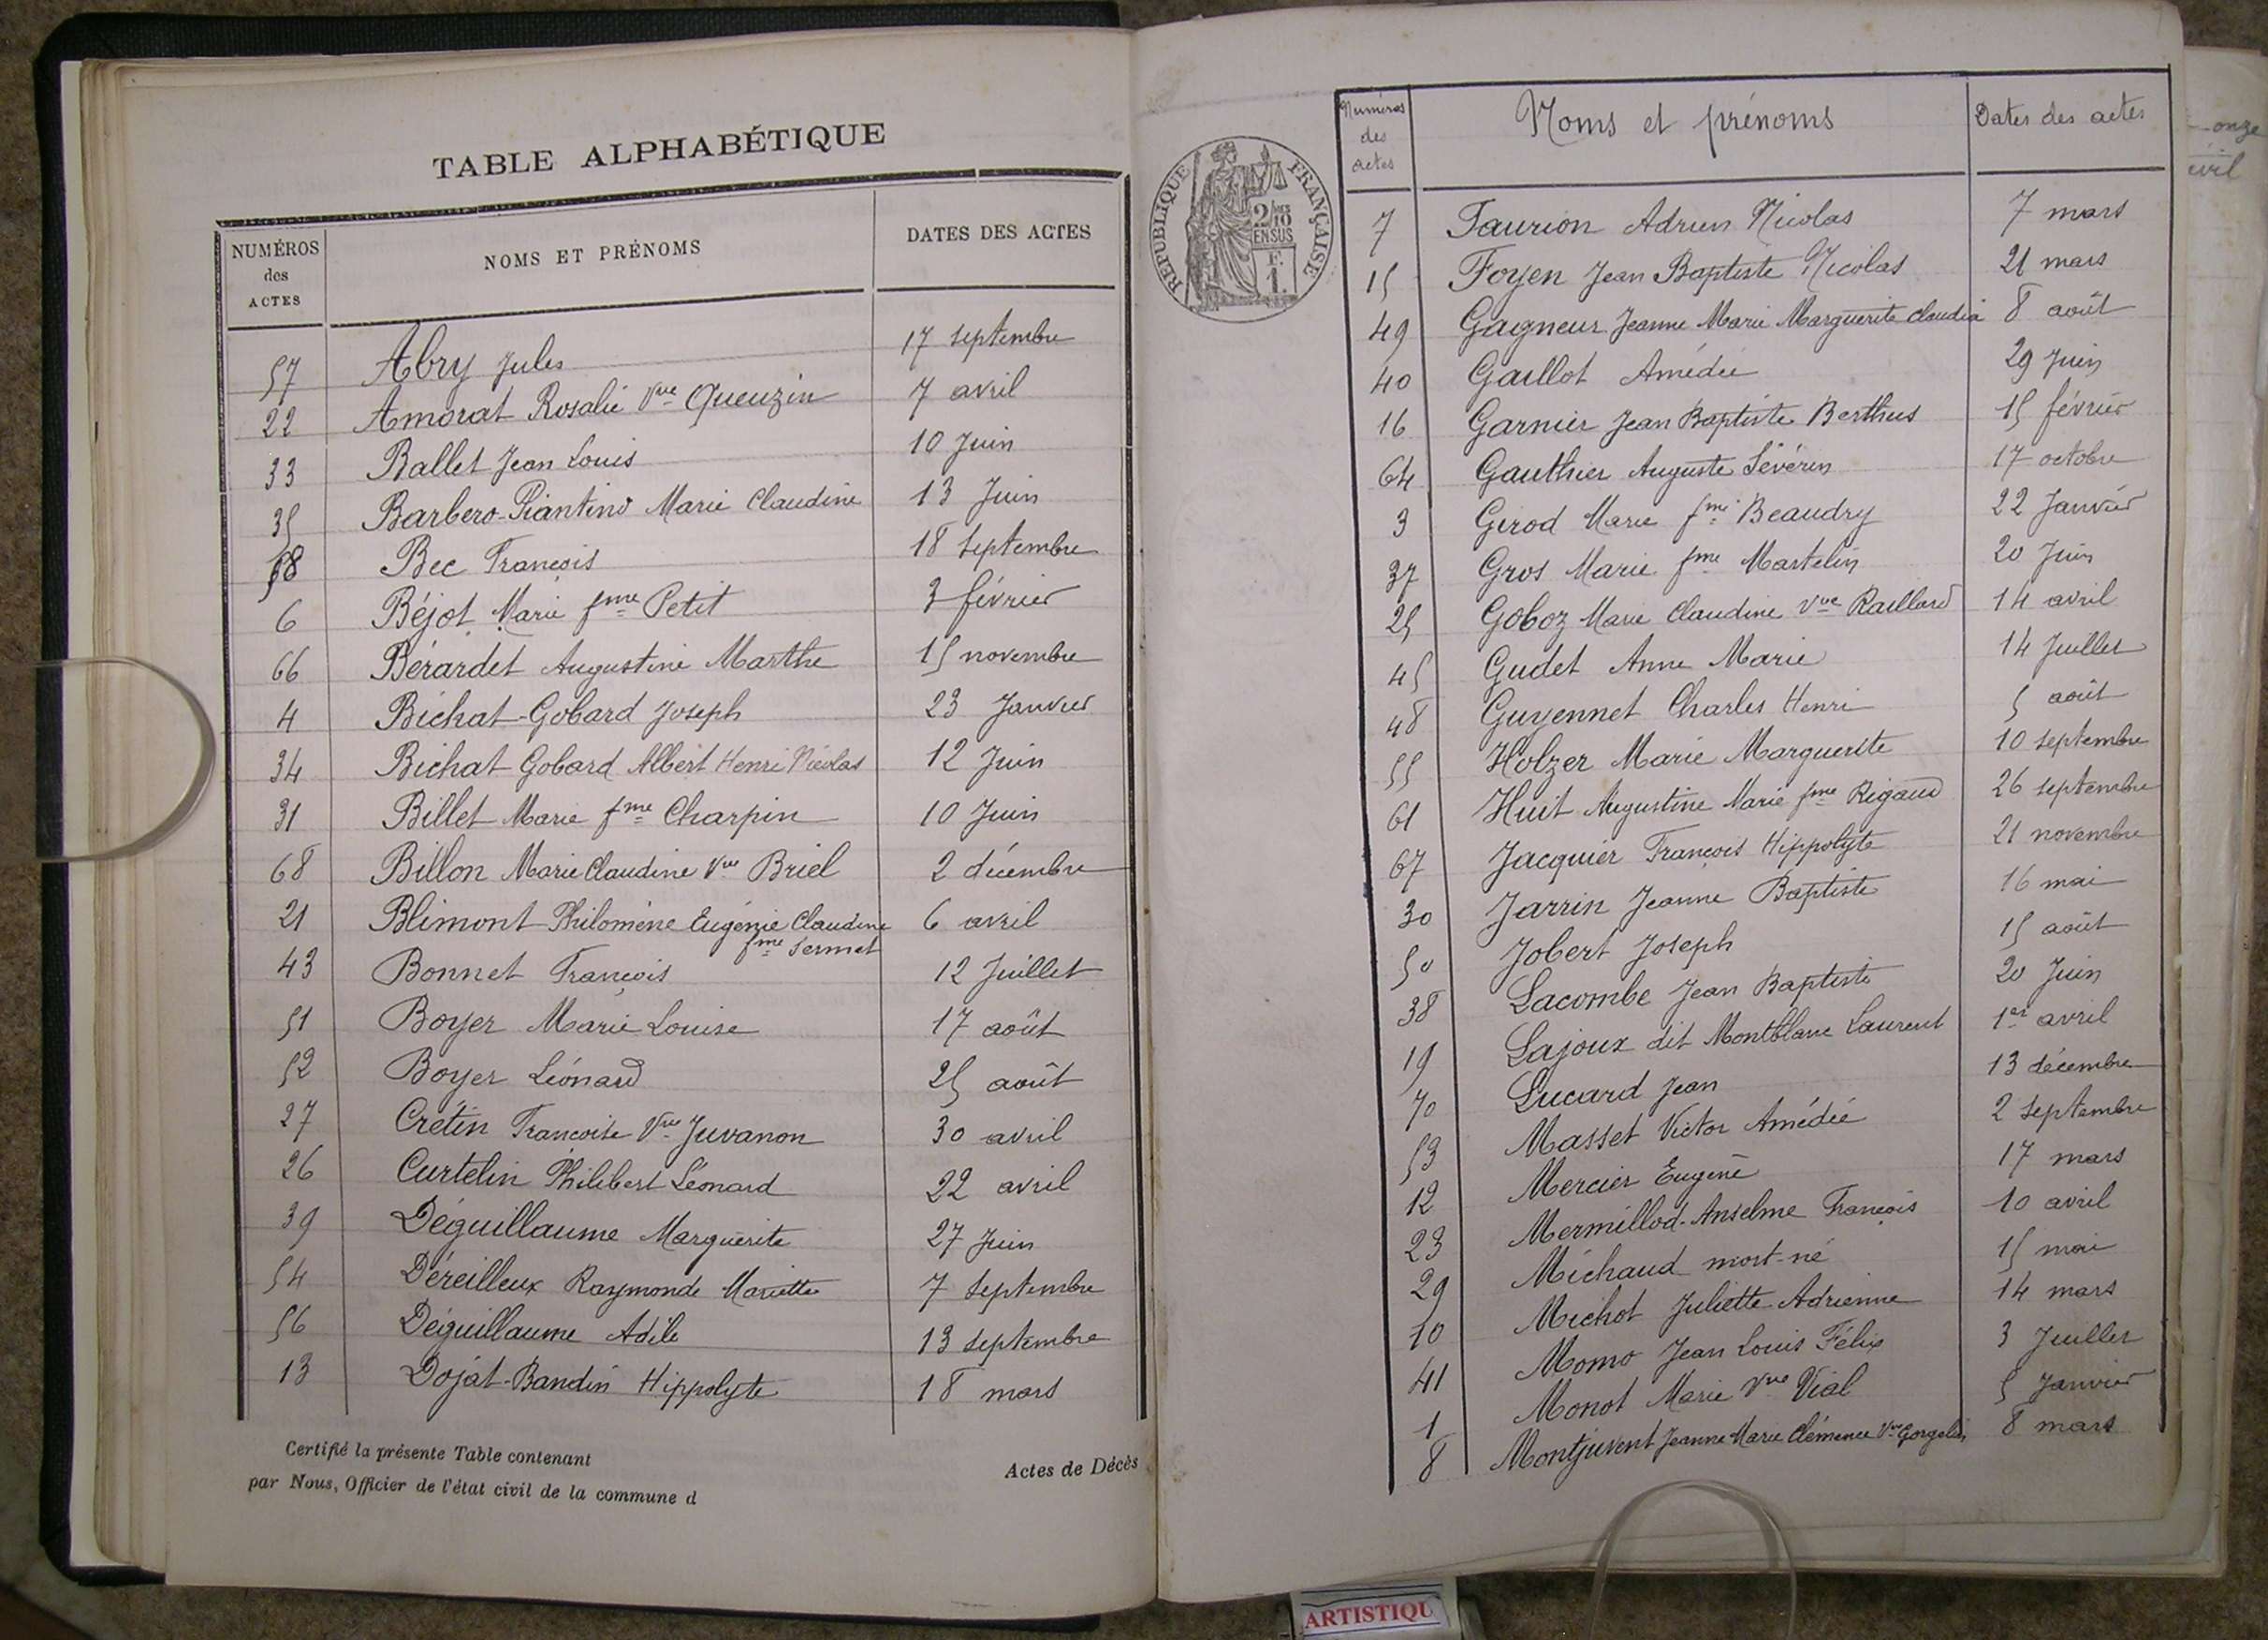 TABLE ALPHABÉTIQUE
NUMÉROS des ACTES NOMS ET PRÉNOMS DATES DES ACTES
57 Abry Jules 17 septembre
22 Amorat Rosalie Vve Queuzin 7 avril
33 Ballet Jean Louis 10 Juin
35 Barbero-Piantino Marie Claudine 13 Juin
58 Bec François 18 septembre
6 Béjot Marie fme Petit 3 février
66 Bérardet Augustine Marthe 15 novembre
4 Bichat-Gobard Joseph 23 Janvier
34 Bichat Gobard Albert Henri Nicolas 12 Juin
31 Billet Marie fme Charpin 10 Juin
68 Billon Marie Claudine Vve Briel 2 décembre
21 Blimont Philomène Eugénie Claudine 6 avril
fme Sermet
43 Bonnet François 12 Juillet
51 Boyer Marie Louise 17 août
52 Boyer Léonard 25 août
27 Crétin Françoise Vve Juvanon 30 avril
26 Curtelin Philibert Léonard 22 avril
39 Déguillaume Marguerite 27 Juin
54 Déreilleux Raymonde Mariette 7 septembre
56 Déguillaume Adèle 13 septembre
13 Dojat-Bandin Hippolyte 18 mars
Certifié la présente Table contenant Actes de Décès
par Nous, Officier de l'état civil de la commune d
RÉPUBLIQUE FRANÇAISE
2/10
EN SUS
F.
1.
Numéros des actes Noms et prénoms Dates des actes
7 Faurion Adrien Nicolas 7 mars
15 Foyen Jean Baptiste Nicolas 21 mars
49 Gagneur Jeanne Marie Marguerite Claudia 8 août
40 Gaillot Amédée 29 Juin
16 Garnier Jean Baptiste Berthus 15 février
64 Gauthier Auguste Séverin 17 octobre
3 Girod Marie fme Beaudry 22 Janvier
37 Gros Marie fme Martelin 20 Juin
25 Goboz Marie Claudine Vve Raillard 14 avril
45 Gudet Anne Marie 14 Juillet
48 Guyennet Charles Henri 5 août
55 Holzer Marie Marguerite 10 septembre
61 Huit Augustine Marie fme Rigaud 26 septembre
67 Jacquier François Hippolyte 21 novembre
30 Jarrin Jeanne Baptiste 16 mai
50 Jobert Joseph 15 août
38 Lacombe Jean Baptiste 20 Juin
19 Lajoux dit Montblanc Laurent 1er avril
70 Lucard Jean 13 décembre
53 Masset Victor Amédée 2 septembre
12 Mercier Eugène 17 mars
23 Mermillod-Anselme François 10 avril
29 Michaud mort-né 15 mai
10 Michot Juliette Adrienne 14 mars
41 Momo Jean Louis Félix 3 Juillet
1 Monot Marie Vve Vial 5 Janvier
8 Montjuvent Jeanne Marie Clémence Vve Gorgelin 8 mars
onze
ivil
ARTISTIQU